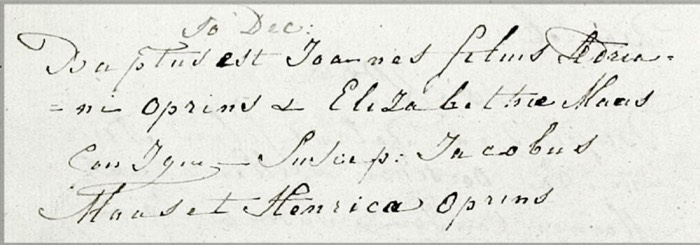 10 Dec:
Baptus est Joannes filius Adria-
=ni Oprins & Elizabethæ Maas
Conjgu— Suscep: Jacobus
Maas et Henrica Oprins